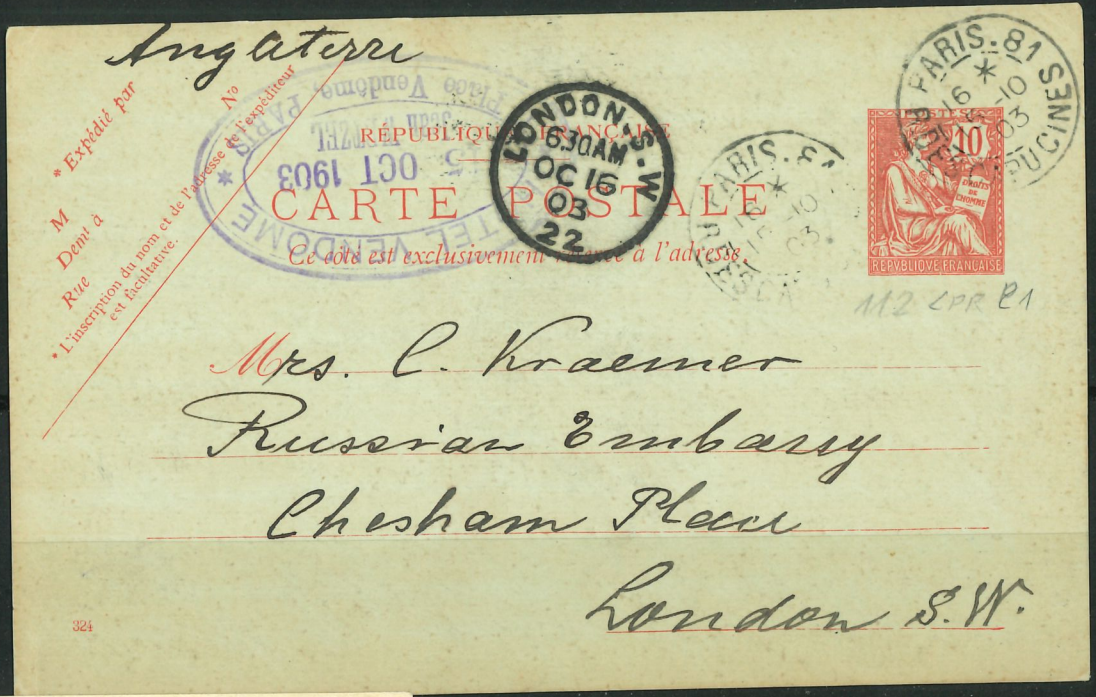 Angleterre
* Expédié par
M
Demt à
Rue
No
* L'inscription du nom et de l'adresse de l'expéditeur
est facultative.
HOTEL VENDOME
PARIS
Place Vendôme,
5 OCT 1903
RÉPUBLIQUE FRANÇAISE
CARTE POSTALE
Ce côté est exclusivement à l'adresse.
LONDON.S.W
6.30AM
OC 16
03
22
PARIS. 81
*
16
10
03
PARIS. 81
*
16
-10
03
CAPUCINES
10
DROITS
DE
L'HOMME
REPVBLIQVE FRANÇAISE
112 CPR
Mrs. C. Kraemer
Russian Embassy
Chesham Place
London S.W.
324